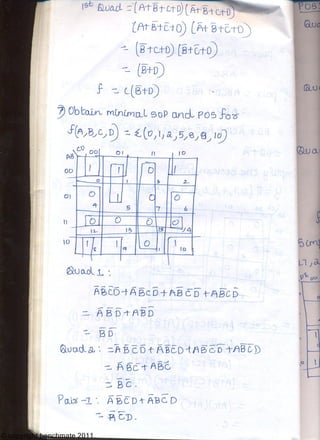 1st Quad = (A+B̅+C+D) (A̅+B̅+C+D)
(A+B̅+C̅+D) (A̅+B̅+C̅+D)
= (B̅+C+D) (B̅+C̅+D)
= (B̅+D)
f = C(B̅+D)
7) Obtain minimal SOP and POS for
f(A,B,C,D) = Σ(0,1,2,5,8,9,10)
CD 00 01 11 10
AB
00 1 1 0 1
0 1 3 2
01 0 1 0 0
4 5 7 6
11 0 0 0 0
12 13 15 14
10 1 1 0 1
8 9 11 10
Quad 1 :
A̅B̅C̅D̅+A̅B̅CD̅+AB̅C̅D̅+AB̅CD̅
= A̅B̅D̅+AB̅D̅
= B̅D̅
Quad 2 : =A̅B̅C̅D̅+A̅B̅C̅D+AB̅C̅D̅+AB̅C̅D
= A̅B̅C̅+AB̅C̅
= B̅C̅.
Pair -1 : A̅B̅C̅D+A̅BC̅D
= A̅C̅D.
benchmate 2011